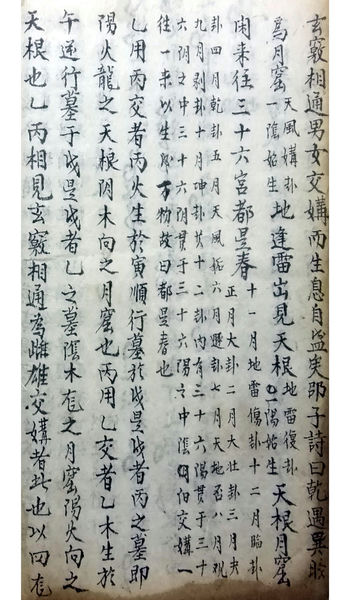 玄竅相通男女交媾而生息自益矣邵子詩曰乾遇巽時
為月窟天風媾卦一陰始生地逢雷出見天根地雷復卦一陽始生天根月窟
闲来往三十六宮都是春正月大卦二月大壮卦三月夬
十一月地雷傷卦十二月臨卦
卦四月乾卦五月天風姤六月遯卦七月天地否八月观
九月剥卦十月坤卦共十二卦内有三十六陽贯于三十
六阴之中三十六阴贯于三十六陽之中陰阳交媾一
往一来以生成万物故曰都是春也
乙用丙交者丙火生於寅順行墓於戌是戌者丙之墓即
陽火龍之天根阴木向之月窟也丙用乙交者乙木生於
午逆行墓于戌是戌者乙之墓陰木龙之月窟陽火向之
天根也乙丙相見玄竅相通為雌雄交媾者此也以四龙